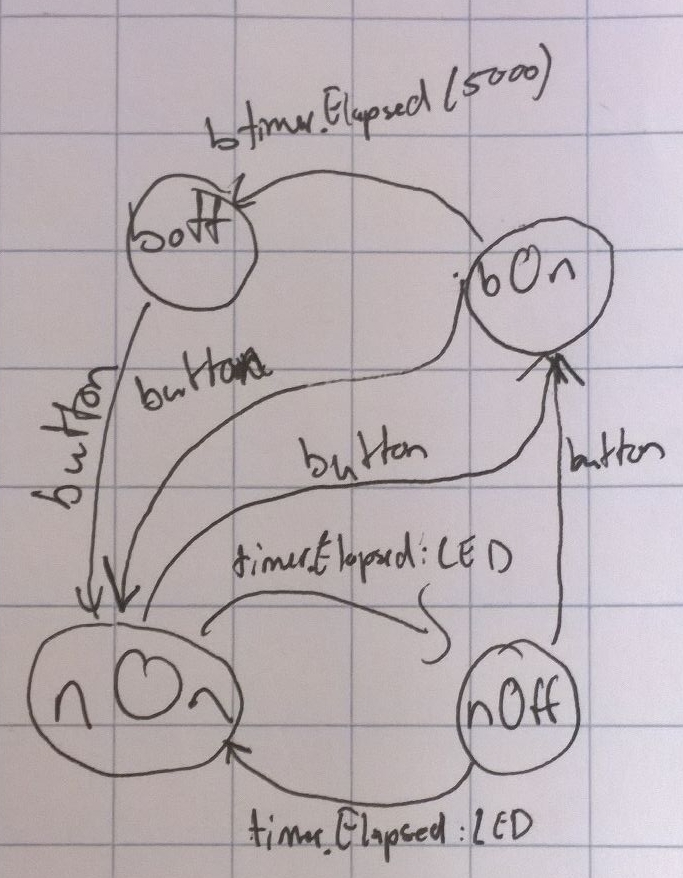 btimer.Elapsed(5000)
boff
bOn
button
button
button
button
timer.Elapsed:LED
nOn
nOff
timer.Elapsed:LED